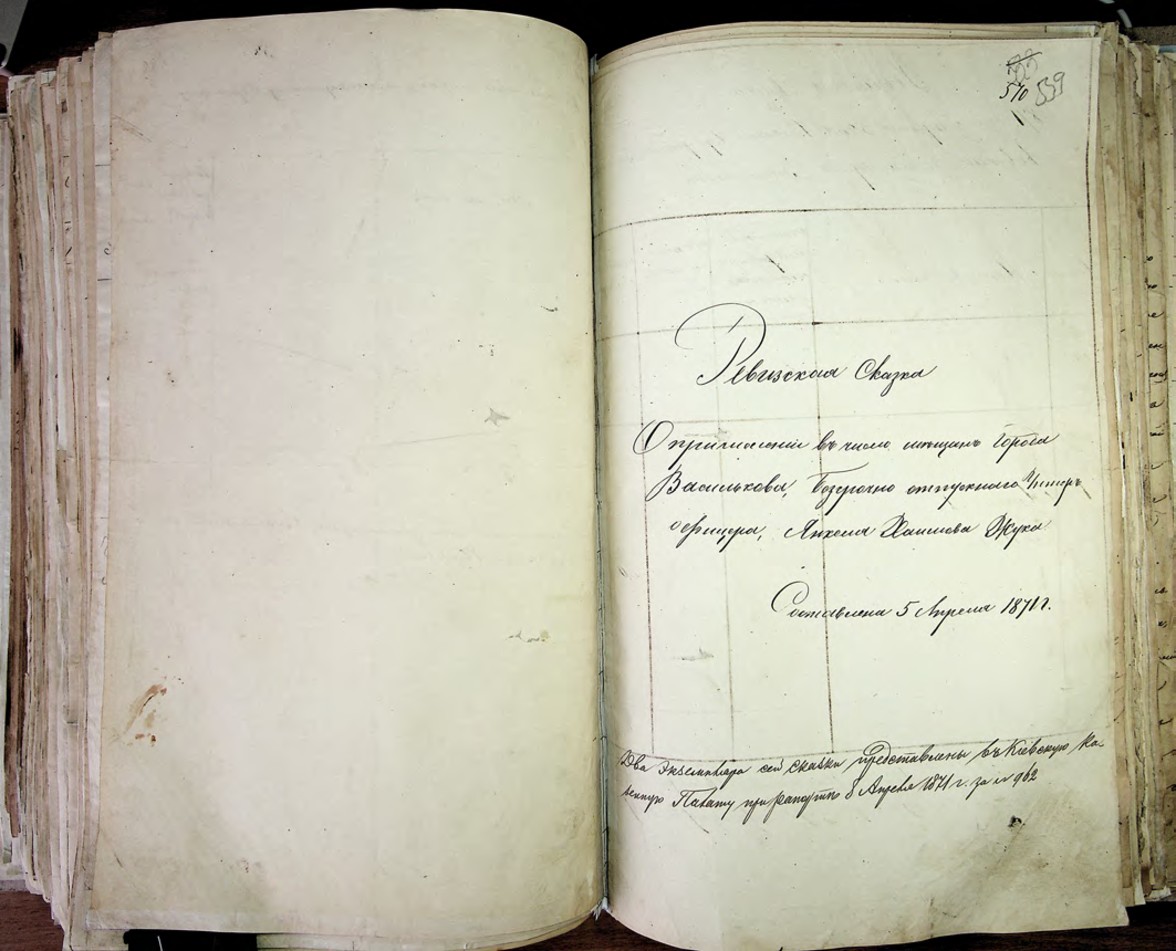 510 539
1
Ревизская Сказка
О причислении въ число мещанъ Города
Василькова, безсрочно отпускнаго Унтеръ
офицера, Янкеля Хаимова Жука
Составлена 5 Апреля 1871 г.
Два Экземпляра сей сказки представлены въ Кіевскую Ка-
зенную Палату при рапорте 8 Апреля 1871 г. за № 962